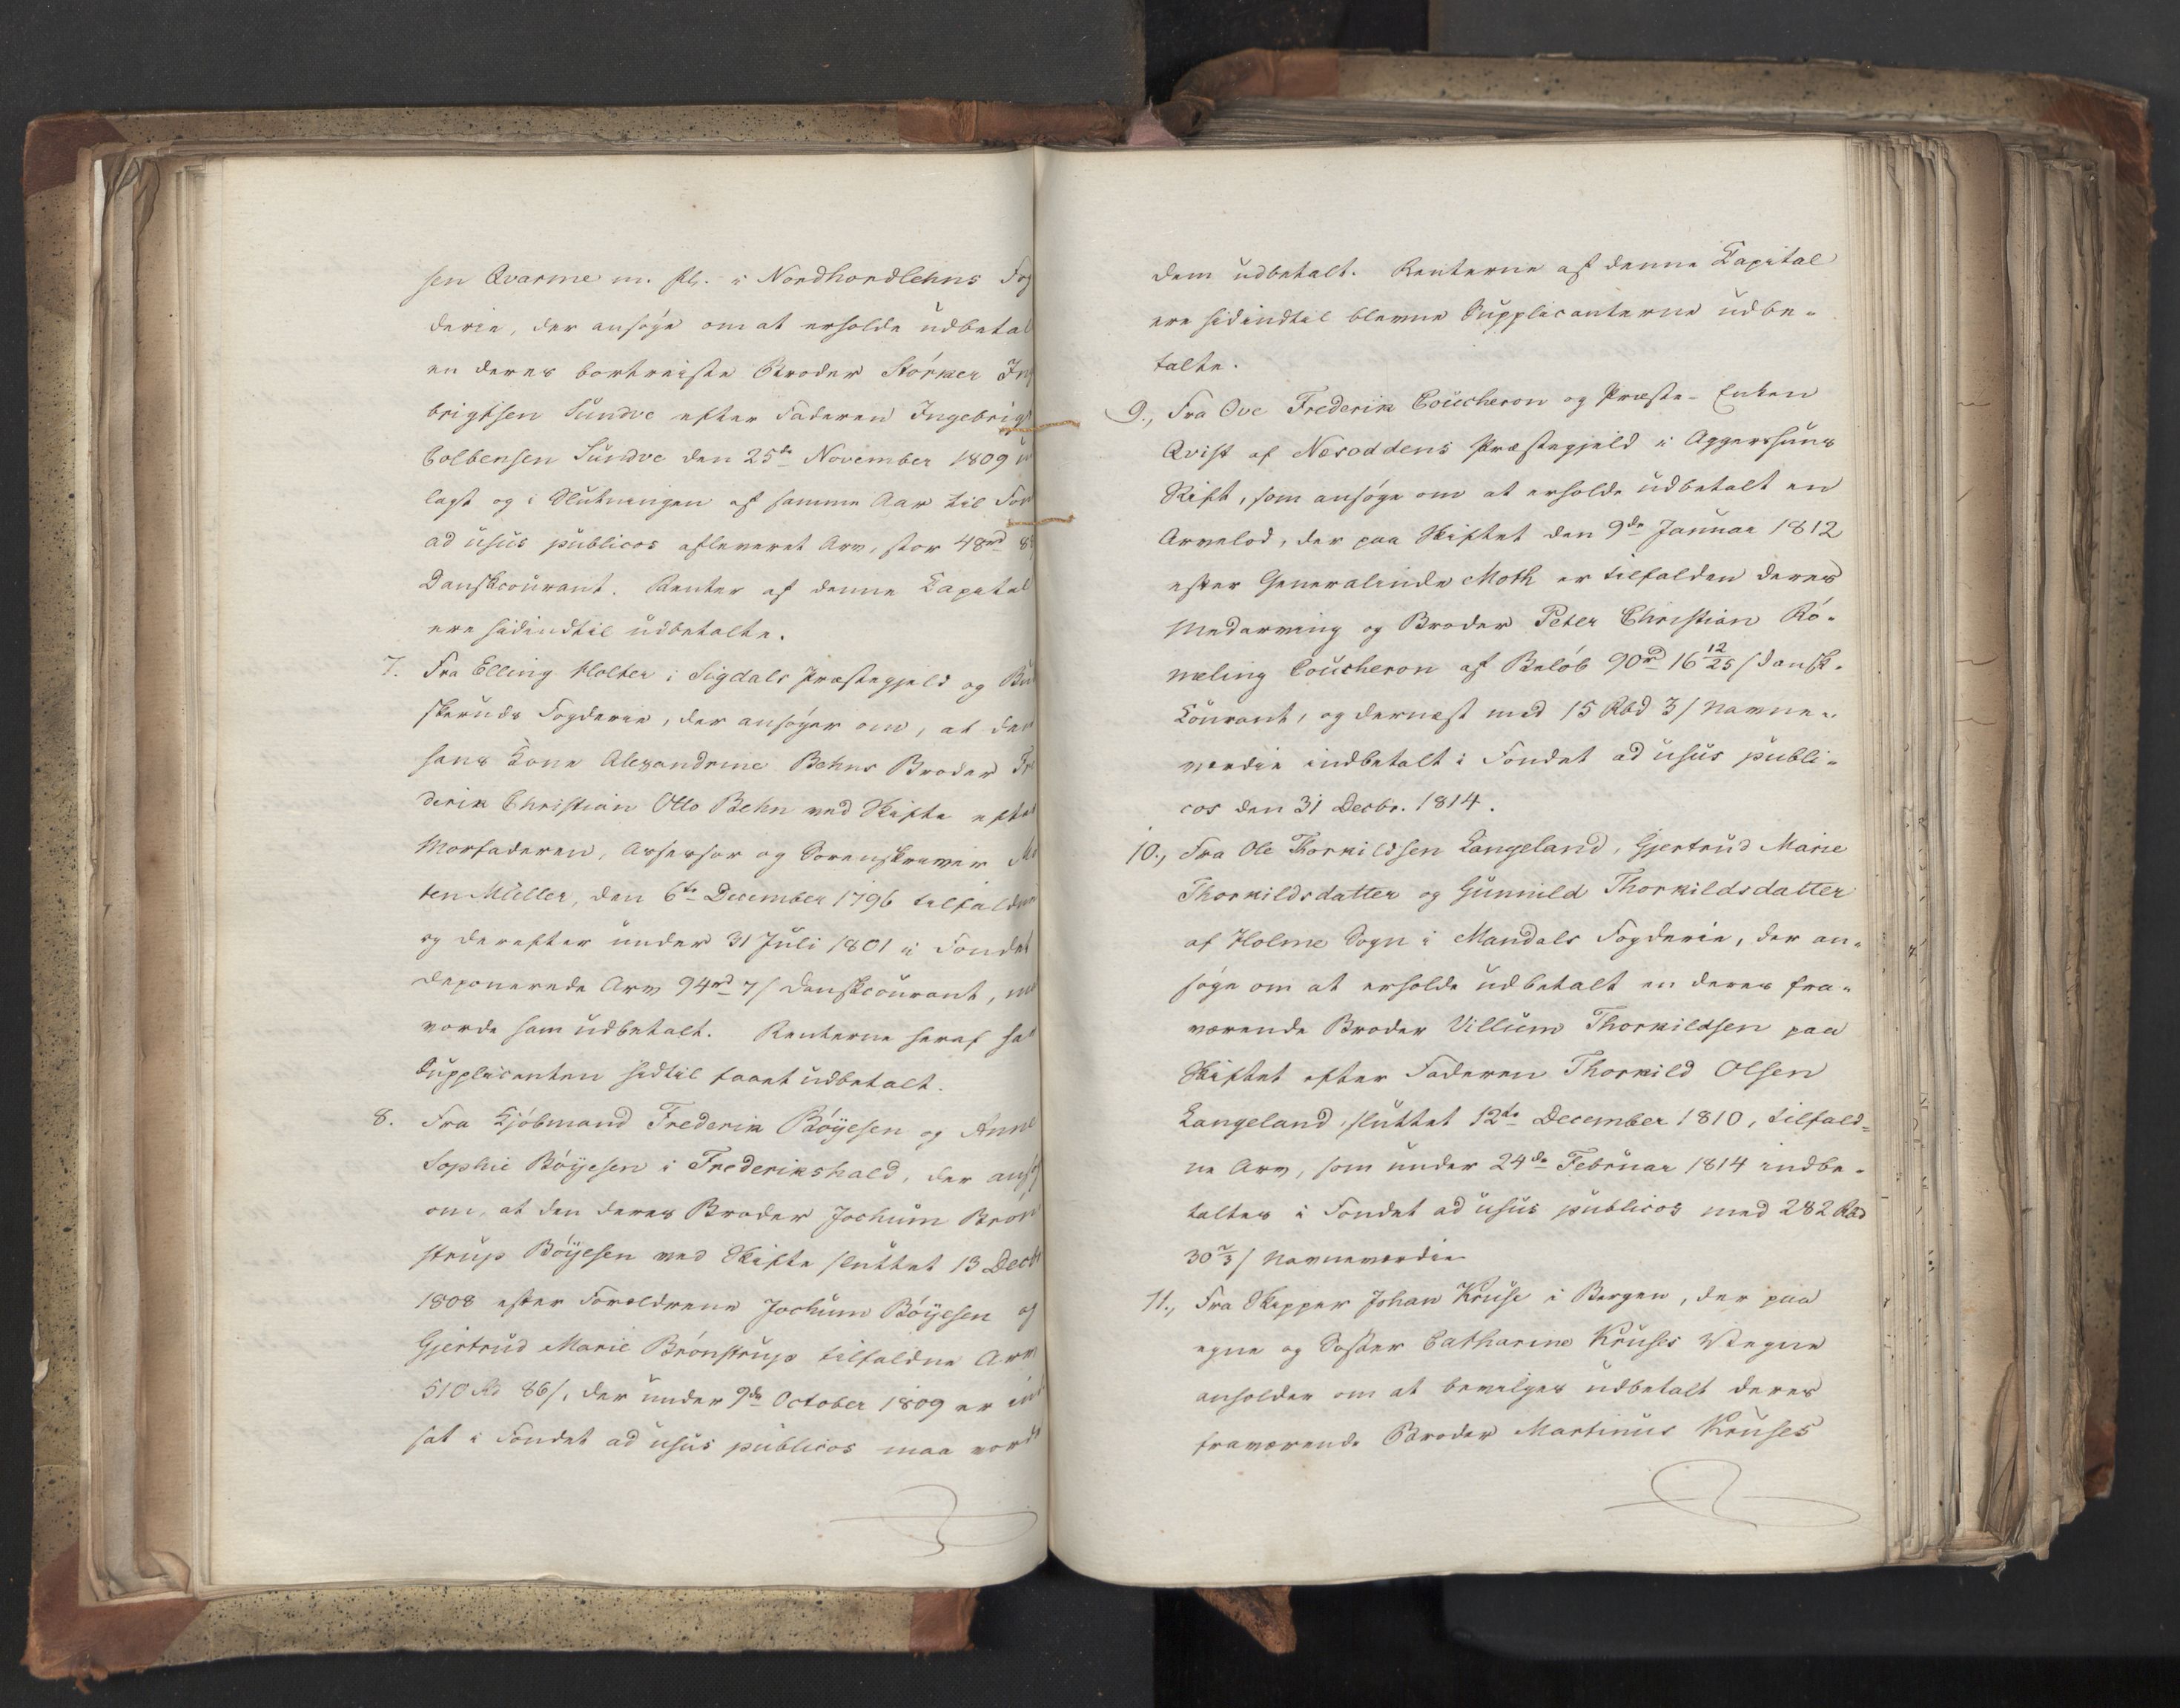 sen Qvarme m. fl. i Nordhordlehns Fog
derie, der ansøge om at erholde udbetal
en deres bortreiste Broder Størker Ing
brigtsen Sundve efter Faderen Ingebrigt
Colbensen Sundve den 25de November 1809
lagt og i Slutningen af samme Aar til Fon
ad usus publicos afleveret Arv, stor 48rd 8
Danskcourant. Renter af denne Capital
ere hidindtil udbetalte.
7. Fra Elling Holter i Sigdals Præstegjeld og Bu
skeruds Fogderie, der ansøger om, at den
hans Kone Alexandrine Behns Broder Fre
derik Christian Otto Behn ved Skifte efter
Morfaderen, Assessor og Sorenskriver
ten Müller, den 6te December 1796 tilfaldne
og derefter under 31 Juli 1801 i Fondet
deponerede Arv 94rd 7/ Danskcourant, maa
vorde ham udbetalt. Renterne heraf har
Supplicanten hidtil faaet udbetalt.
8. Fra Kjøbmand Frederik Bøyesen og Anne
Sophie Bøyesen i Frederikshald, der ansø
om, at den deres Broder Jochum Brøn
strup Bøyesen ved Skifte sluttet 13 Decbr
1808 efter Forældrene Jochum Bøyesen og
Gjertrud Marie Brønstrup tilfaldne Arv
510 Rd 86/, der under 9de October 1809 er ind
sat i Fondet ad usus publicos maa vorde
dem udbetalt. Renterne af denne Capital
ere hidindtil blevne Supplicanterne udbe-
talte.
9., Fra Ove Frederik Coucheron og Præste-Enken
Qvist af Næsoddens Præstegjeld i Aggershuus
Stift, som ansøge om at erholde udbetalt en
Arvelod, der paa Skiftet den 9de Januar 1812
efter Generalinde Moth er tilfalden deres
Medarving og Broder Peter Christian Rö-
meling Coucheron af Beløb 90rd 16 12/25 / Dansk-
Courant, og dernæst med 15 Rbd 3/ Navne-
værdie indbetalt i Fondet ad usus publi-
cos den 31 Decbr. 1814.
10., Fra Ole Thorkildsen Langeland, Gjertrud Marie
Thorkildsdatter og Gunnild Thorkildsdatter
af Holme Sogn i Mandals Fogderie, der an-
søge om at erholde udbetalt en deres fra-
værende Broder Villum Thorkildsen paa
Skiftet efter Faderen Thorkild Olsen
Langeland, sluttet 12te December 1810, tilfald-
ne Arv, som under 24de Februar 1814 indbe-
taltes i Fondet ad usus publicos med 282 Rbd
30 2/3 / Navneværdie
11., Fra Skipper Johan Kruse i Bergen, der paa
egne og Søster Catharine Kruses Vegne
anholder om at bevilges udbetalt deres
fraværende Broder Martinus Kruses